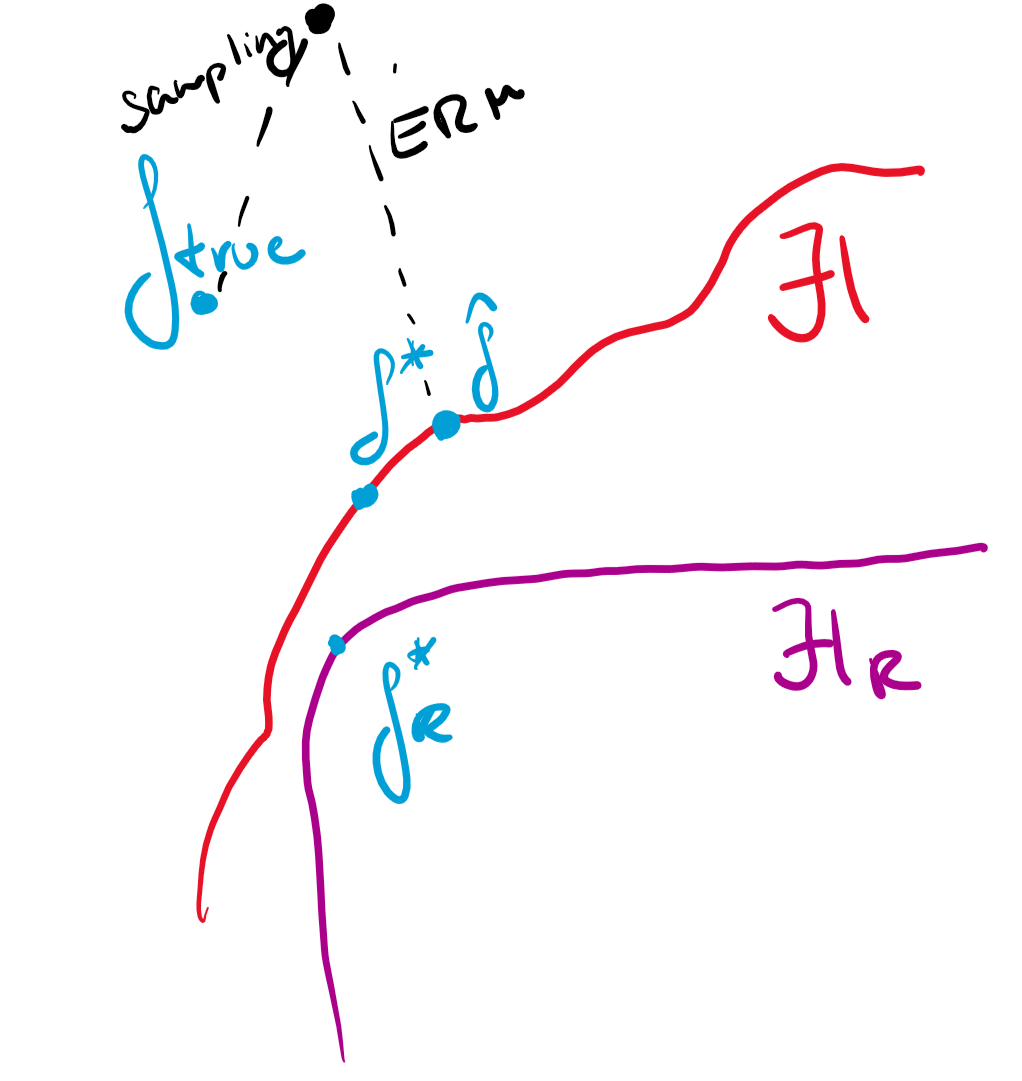 sampling
ERM
f true
f*
f̂
H
H R
f* R